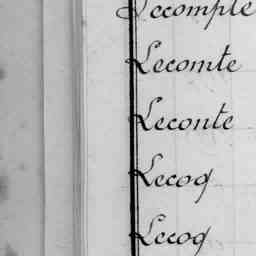 Lecompte
Lecomte
Leconte
Lecoq
Lecoq